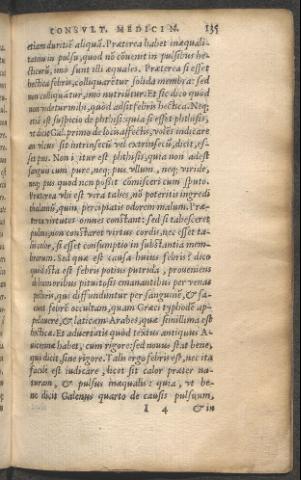 CONSVLT. MEDICIN. 135
etiam duritiẽ aliquã. Præterea habet inæquali-
tatem in pulsu, quod nõ cõuenit in pulsibus he-
cticorũ, imò sunt illi æquales. Præterea si esset
hectica febris, colliquarẽtur solida membra: sed
non colliquãtur, imò nutriũtur. Et sic dico quòd
non videtur mihi, quòd adsit febris hectica. Neq;
etiã est suspicio de phthisi: quia si esset phthisis,
vt dicit Gal. primo de locis affectis, volẽs indicare
an vlcus sit intrinsecũ vel extrinsecũ, dicit, es-
se pus. Non igitur est phthisis, quia non adest
sanguis cum pure, neq; pus vllum, neq; viride,
neq; pus quod non possit cõmisceri cum sputo.
Præterea vbi est vera tabes, nõ poteritis ingredi
thalamũ, quin percipiatis odorem malum. Præ-
terea virtutes omnes constant: sed si tabesceret
pulmo, non constaret virtus cordis, nec esset ta-
lis color, si esset consumptio in substantia mem-
brorum. Sed quæ est causa huius febris? dico
quòd ista est febris potius putrida, proueniens
ab humoribus pituitosis emanantibus per venas
pectoris, quæ diffunduntur per sanguinẽ, & fa-
ciunt febrẽ occultam, quam Græci typhodẽ ap-
pellauere, & laticam Arabes, quæ simillima est
hectica. Et aduertatis quòd textus antiquus A-
uicennæ habet, cum rigore: sed nouus stat bene,
qui dicit, sine rigore. Talis ergo febris est, nec ita
facilè est iudicare, licet sit calor præter na-
turam, & pulsus inæqualis: quia, vt be-
ne dicit Galenus quarto de causis pulsuum,
I 4 & in